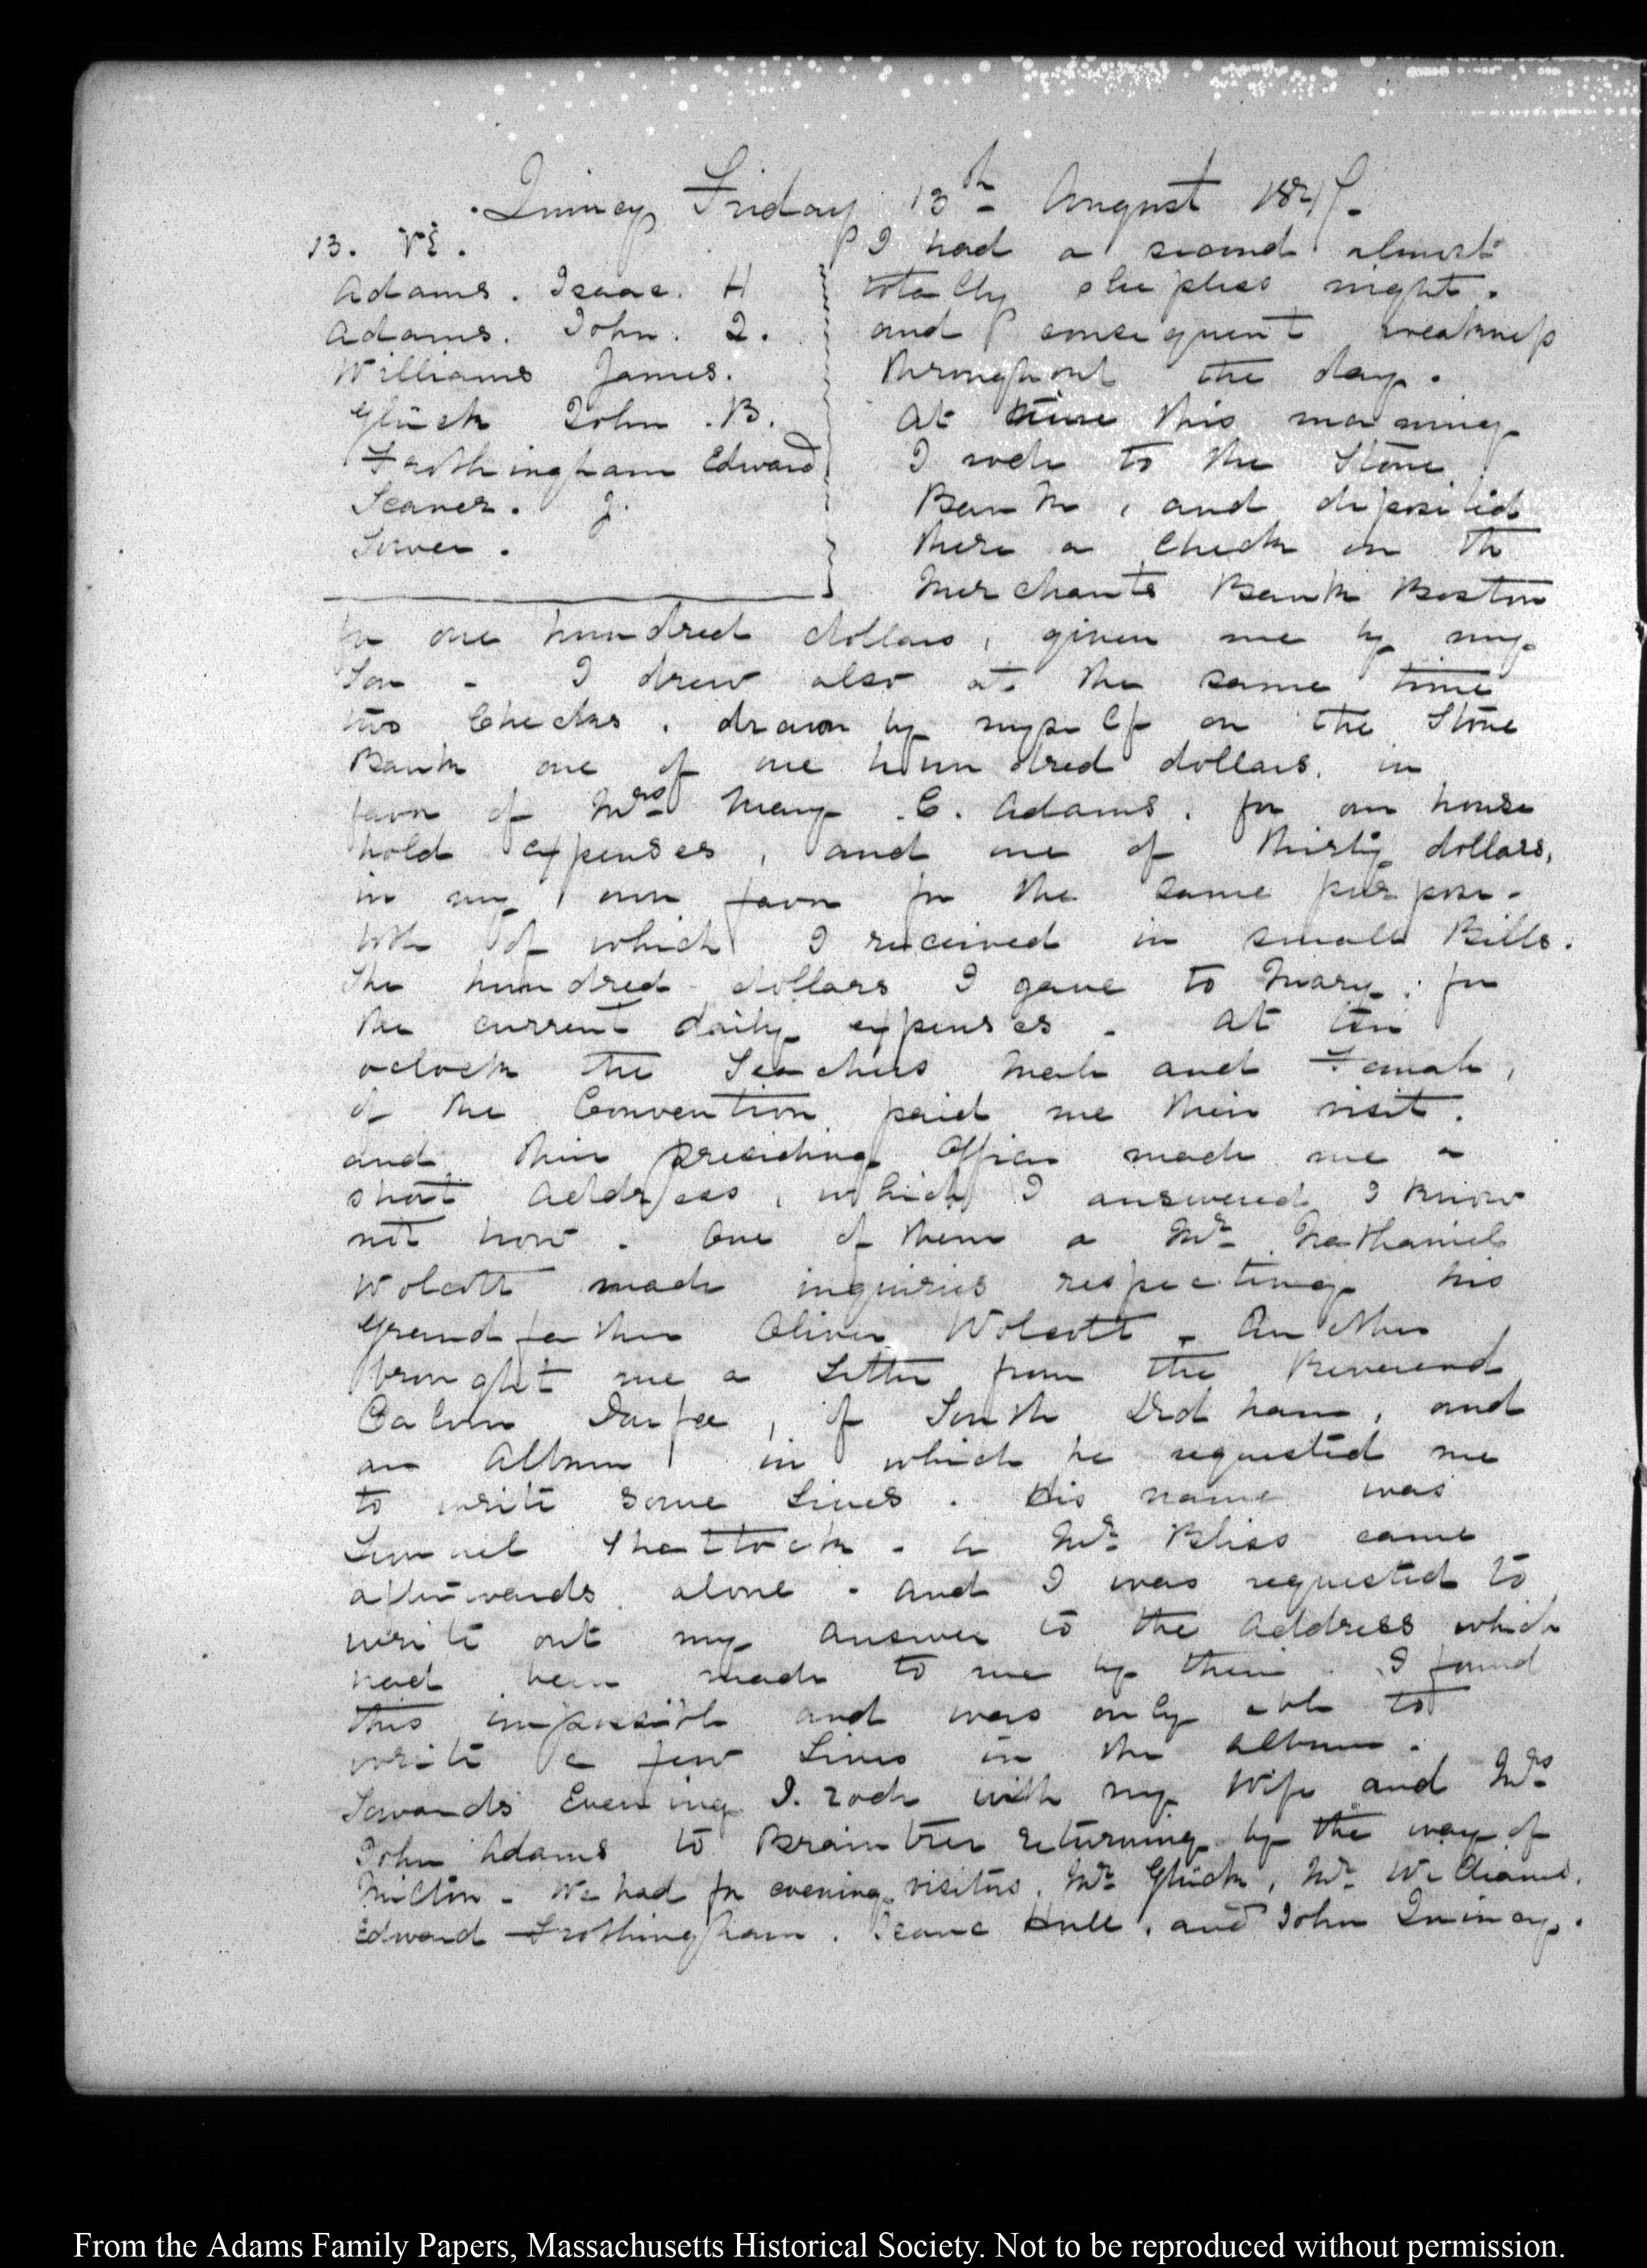 Quincy Friday 13th August 1847.
13. VI.
Adams. Isaac. H
Adams. John. Q.
Williams James.
Glück John. B.
Frothingham Edward
Seaver. J.
Sower.
I had a second almost
totally sleepless night.
and consequent weakness
throughout the day.
At nine this morning
I rode to the Stone
Bank, and deposited
there a check on the
Merchants Bank Boston
for one hundred dollars, given me by my
Son - I drew also at the same time
two Checks. drawn by myself on the Stone
Bank one of one hundred dollars. in
favor of Mrs Mary. C. Adams. for our house
hold expenses, and one of thirty dollars,
in my own favor for the same purpose -
both of which I received in small Bills.
The hundred dollars I gave to Mary. for
the current daily expenses - At ten
oclock the Teachers Male and Female,
of the Convention paid me their visit.
and their presiding Officer made me a
short Address, which I answered I know
not how. One of them a Mr Nathaniel
Wolcott made inquiries respecting his
Grandfather Oliver Wolcott - Another
brought me a Letter from the Reverend
Calvin Durfee, of South Dedham, and
an Album in which he requested me
to write some Lines. His name was
Lemuel Shattock - a Mr Bliss came
afterwards alone - and I was requested to
write out my answer to the Address which
had been made to me by them. I found
this impossible and was only able to
write a few Lines in the album.
Towards Evening I. rode with my Wife and Mrs
John Adams to Braintree returning by the way of
Milton - We had for evening visitors, Mr Glück, Mr Williams.
Edward Frothingham. Isaac Hull, and John Quincy.
From the Adams Family Papers, Massachusetts Historical Society. Not to be reproduced without permission.